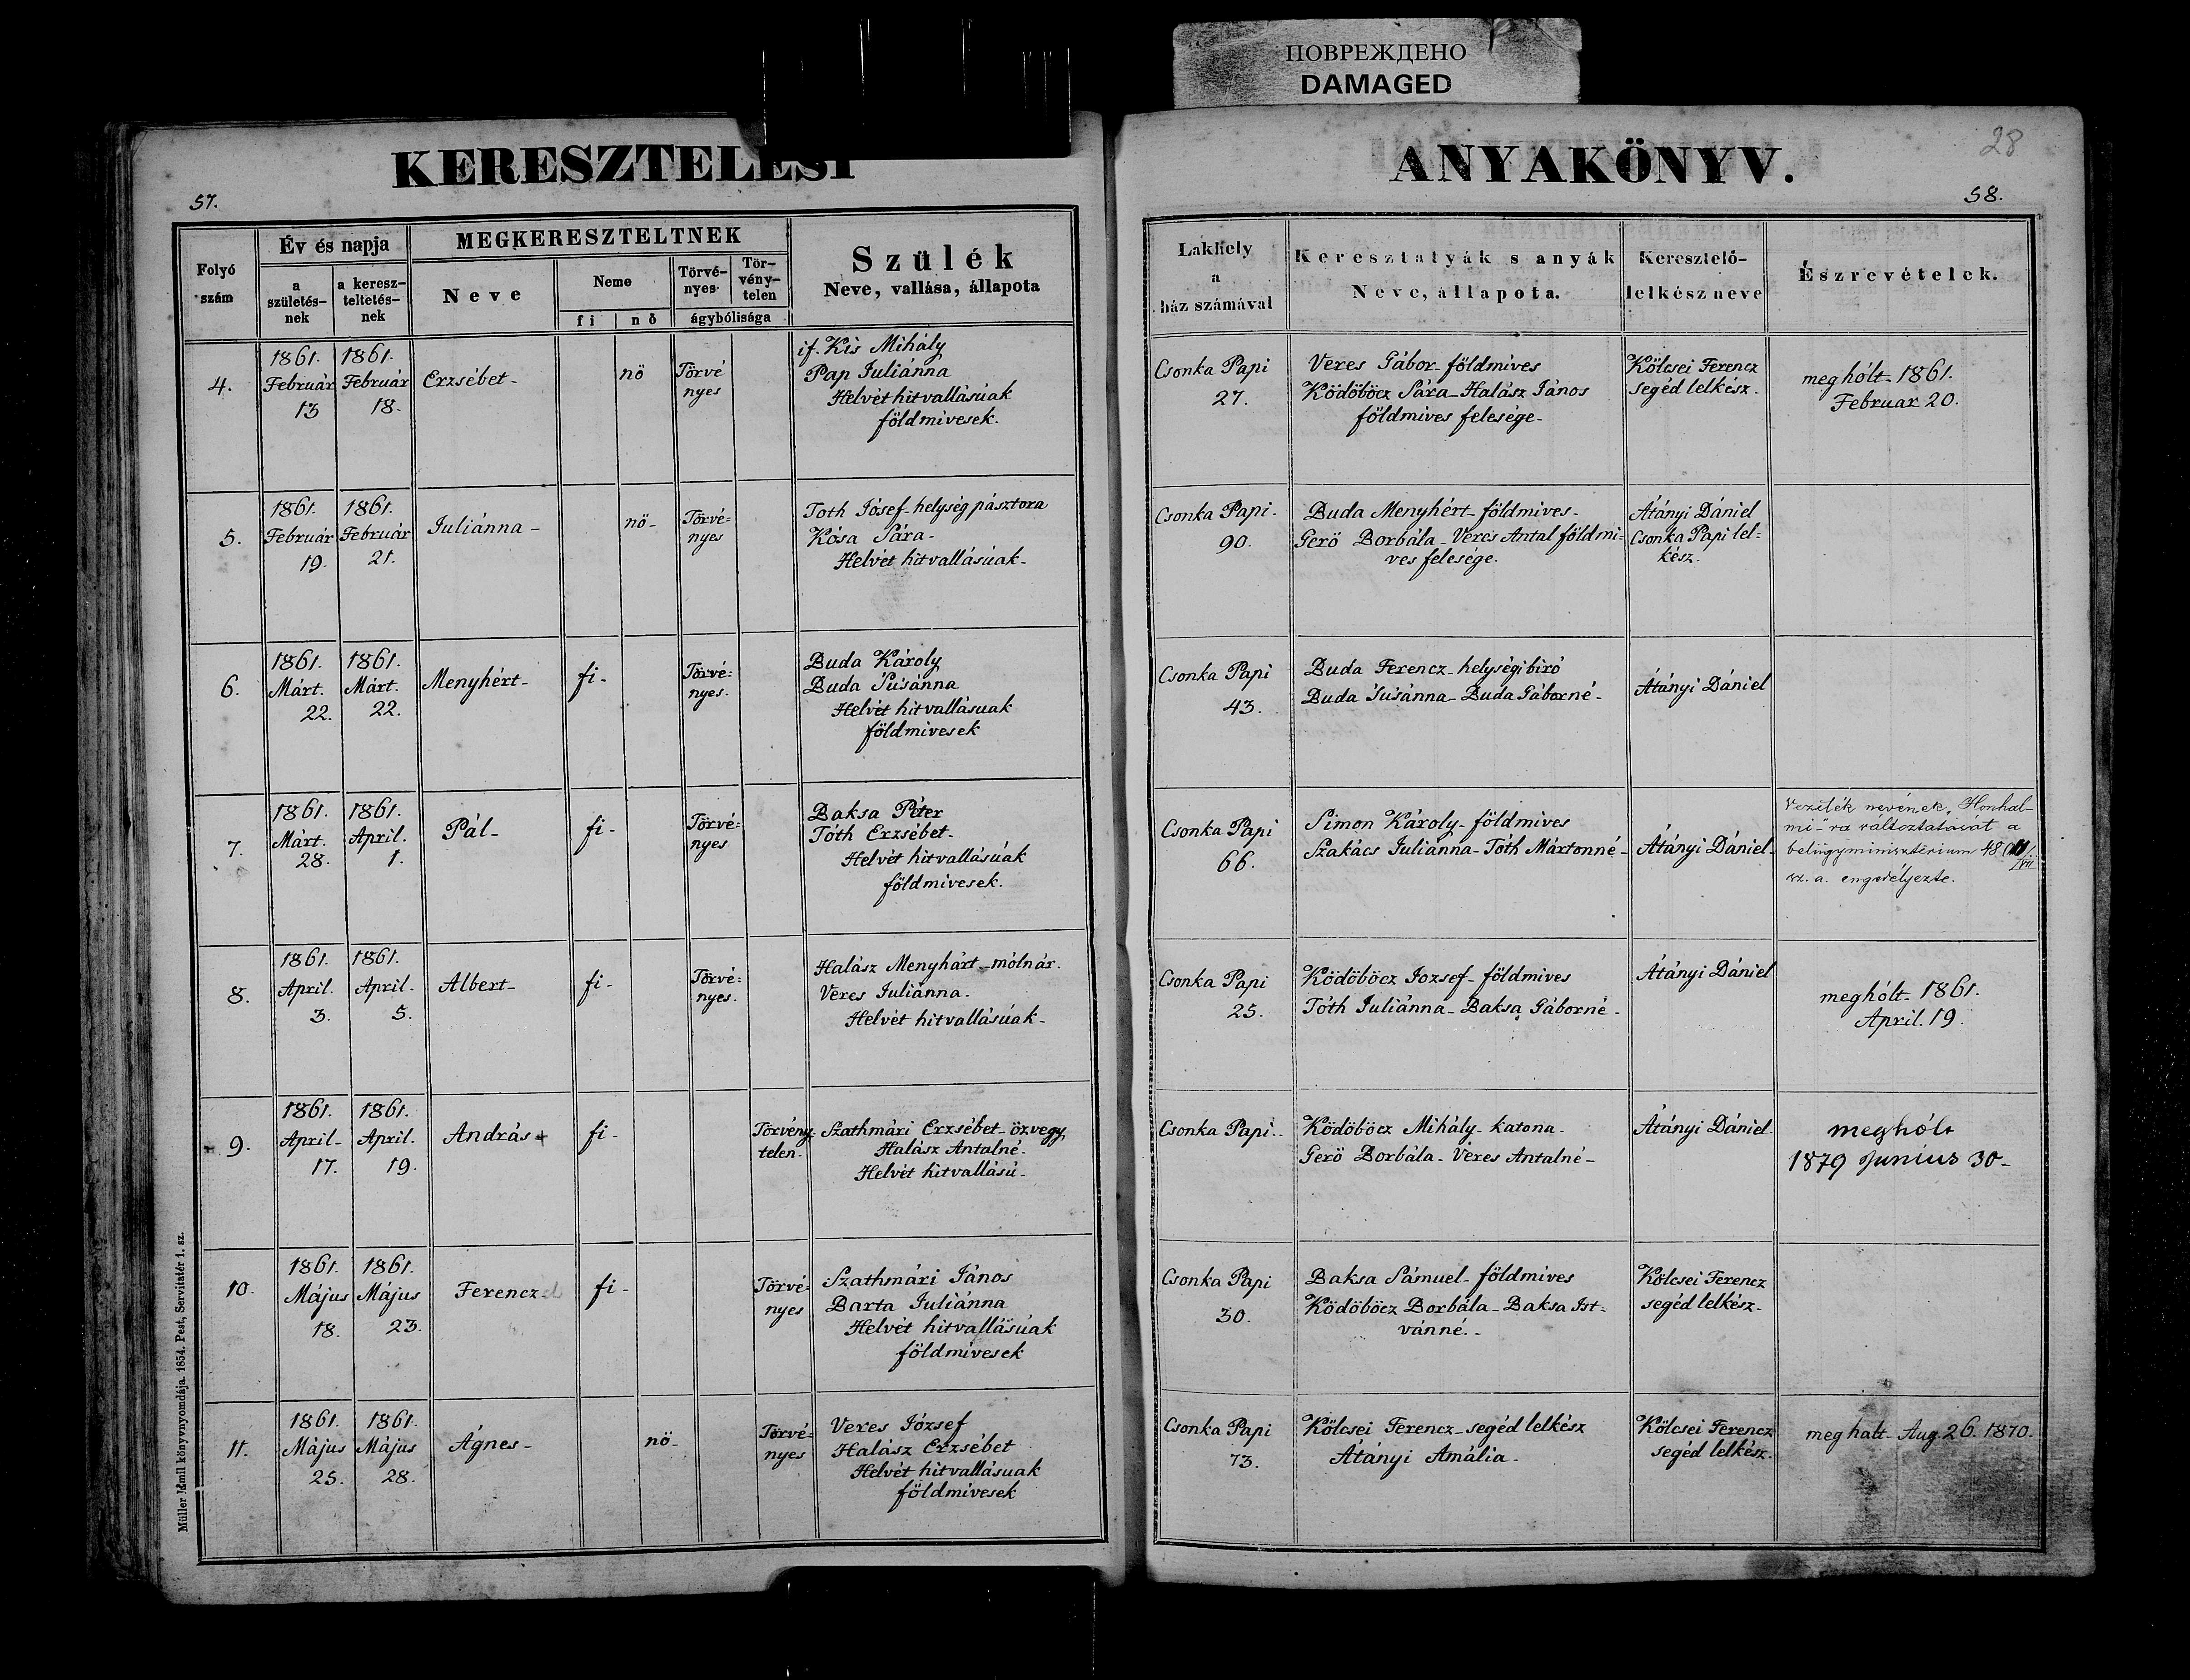 ПОВРЕЖДЕНО
DAMAGED
KERESZTELÉSI
57.
Folyó szám
Év és napja
a születés-nek
a keresz-teltetés-nek
MEGKERESZTELTNEK
Neve
Neme
fi | nő
Törvé-nyes
Tör-vény-telen
ágybólisága
Szülék
Neve, vallása, állapota
ANYAKÖNYV.
28
58.
Lakhely
a
ház számával
Keresztatyák s anyák
Neve, állapota.
Keresztelő-
lelkész neve
Észrevételek.
4.
1861.
Február
13
1861.
Február
18.
Erzsébet-
nö
Törvé
nyes
if. Kis Mihály
Pap Juliánna
Helvét hitvallásúak
földmivesek.
Csonka Papi
27.
Veres Gábor-földmives
Ködöböcz Sára-Halász János
földmives felesége-
Kölcsei Ferencz
segéd lelkész.
meghólt-1861.
Februar 20.
5.
1861.
Február
19.
1861.
Február
21.
Juliánna-
nö-
Törvé=
nyes
Toth Jósef-helység pásztora
Kósa Sára-
Helvét hitvallásúak-
Csonka Papi-
90.
Buda Menyhért-földmives-
Gerö Borbála-Veres Antal földmi=
ves felesége.
Átányi Dániel
Csonka Papi lel=
kész.
6.
1861.
Márt.
22.
1861.
Márt.
22.
Menyhért-
fi-
Törvé=
nyes.
Buda Károly
Buda Susánna
Helvét hitvallásuak
földmivesek
Csonka Papi
43.
Buda Ferencz-helységi biró
Buda Susánna-Buda Gáborné-
Átányi Dániel
7.
1861.
Márt.
28.
1861.
April.
1.
Pál-
fi-
Törvé=
nyes
Baksa Péter
Tóth Erzsébet-
Helvét hitvallásúak
földmivesek.
Csonka Papi
66.
Simon Károly-földmives
Szakács Juliánna-Tóth Mártonné-
Átányi Dániel-
Vezeték nevének, Honhal-
mi"-ra változtatását a
belügyminisztérium 48
sz. a. engedélyezte.
8.
1861.
April.
3.
1861.
April.
5.
Albert-
fi-
Törvé=
nyes.
Halász Menyhárt-mólnár.
Veres Juliánna.
Helvét hitvallásúak-
Csonka Papi
25.
Ködöböcz Jozsef-földmives
Tóth Juliánna-Baksa Gáborné-
Átányi Dániel
meghólt-1861.
April.19.
9.
1861.
April-
17.
1861.
April.
19.
András+
fi-
Törvény
telen-
Szathmári Erzsébet-özvegy
Halász Antalné.
Helvét hitvallású-
Csonka Papi..
Ködöböcz Mihály-katona.
Gerö Borbála-Veres Antalné-
Átányi Dániel.
meghólt
1879 Junius 30-
10.
1861.
Május
18.
1861.
Május
23.
Ferencz
fi-
Törvé=
nyes
Szathmári János
Barta Juliánna
Helvét hitvallásúak
földmivesek
Csonka Papi
30.
Baksa Sámuel-földmives
Ködöböcz Borbála-Baksa Ist=
vánné.-
Kölcsei Ferencz
segéd lelkész-
11.
1861.
Május
25.
1861.
Május
28.
Ágnes-
nö-
Törvé=
nyes
Veres József
Halász Erzsébet
Helvét hitvallásuak
földmivesek
Csonka Papi
73.
Kölcsei Ferencz-segéd lelkész
Átányi Amália-
Kölcsei Ferencz
segéd lelkész.
meghalt-Aug.26.1870.
Müller Emil könyvnyomdája. 1854. Pest, Servitatér 1. sz.